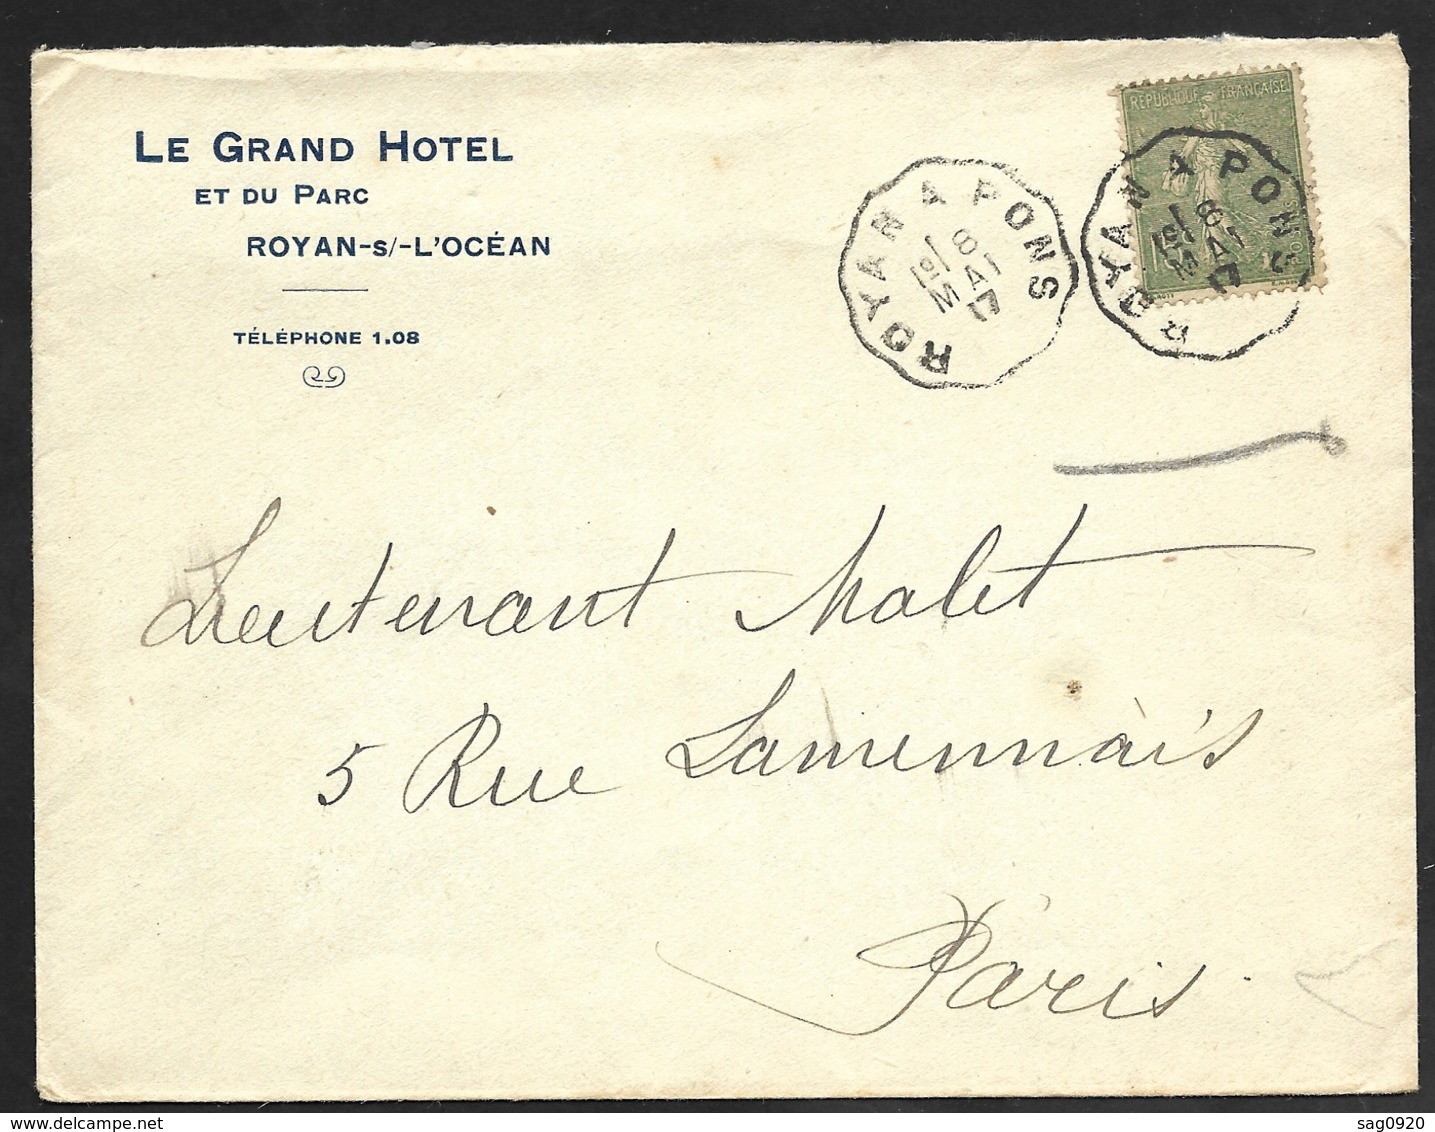 LE GRAND HOTEL
ET DU PARC
ROYAN-s/-L'OCÉAN
TÉLÉPHONE 1.08
REPUBLIQUE FRANÇAISE
ROYAN A PONS
1º/ 8
MAI
17
ROYAN A PONS
1º/ 8
MAI
17
Lieutenant Malet
5 Rue Lamennais
Paris.
sag0920